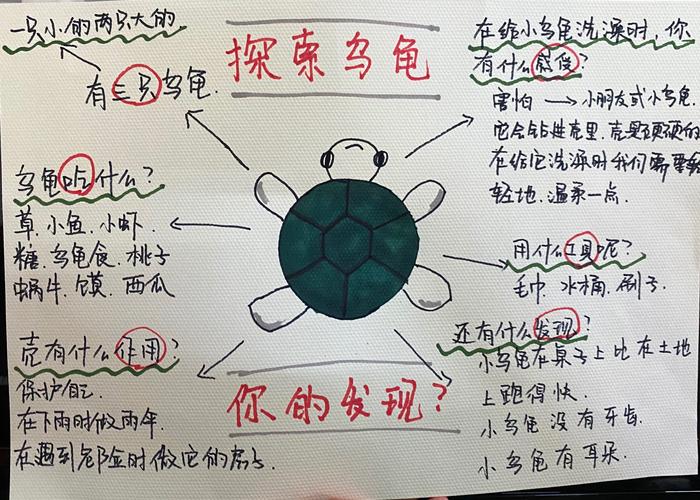 探索乌龟
一只小的两只大的.
有三只乌龟.
乌龟吃什么?
草.小鱼.小虾.
糖.乌龟食.桃子
蜗牛.馍.西瓜
壳有什么作用?
保护自己.
在下雨时做雨伞.
在遇到危险时做它的房子.
在给小乌龟洗澡时,你
有什么感受?
害怕 → 小朋友或小乌龟.
它会钻进壳里.壳是硬硬的
在给它洗澡时我们需要
轻地.温柔一点.
用什么工具呢?
毛巾.水桶.刷子.
还有什么发现?
小乌龟在桌子上比在土地
上跑得快.
小乌龟没有牙齿.
小乌龟有耳朵.
你的发现?